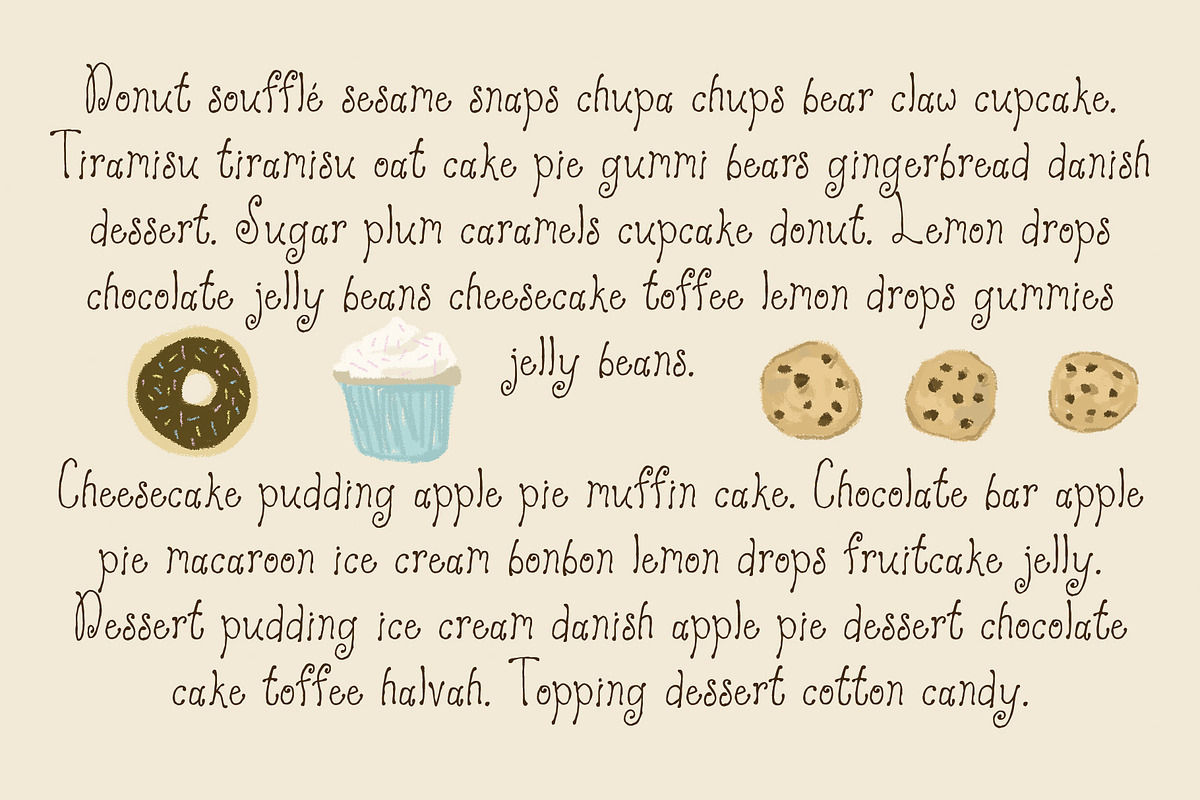 Donut soufflé sesame snaps chupa chups bear claw cupcake.
Tiramisu tiramisu oat cake pie gummi bears gingerbread danish
dessert. Sugar plum caramels cupcake donut. Lemon drops
chocolate jelly beans cheesecake toffee lemon drops gummies
jelly beans.
Cheesecake pudding apple pie muffin cake. Chocolate bar apple
pie macaroon ice cream bonbon lemon drops fruitcake jelly.
Dessert pudding ice cream danish apple pie dessert chocolate
cake toffee halvah. Topping dessert cotton candy.